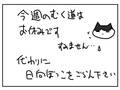 今週のむく道は
お休みです
すみません…
代わりに
日向ぼっこをごらん下さい